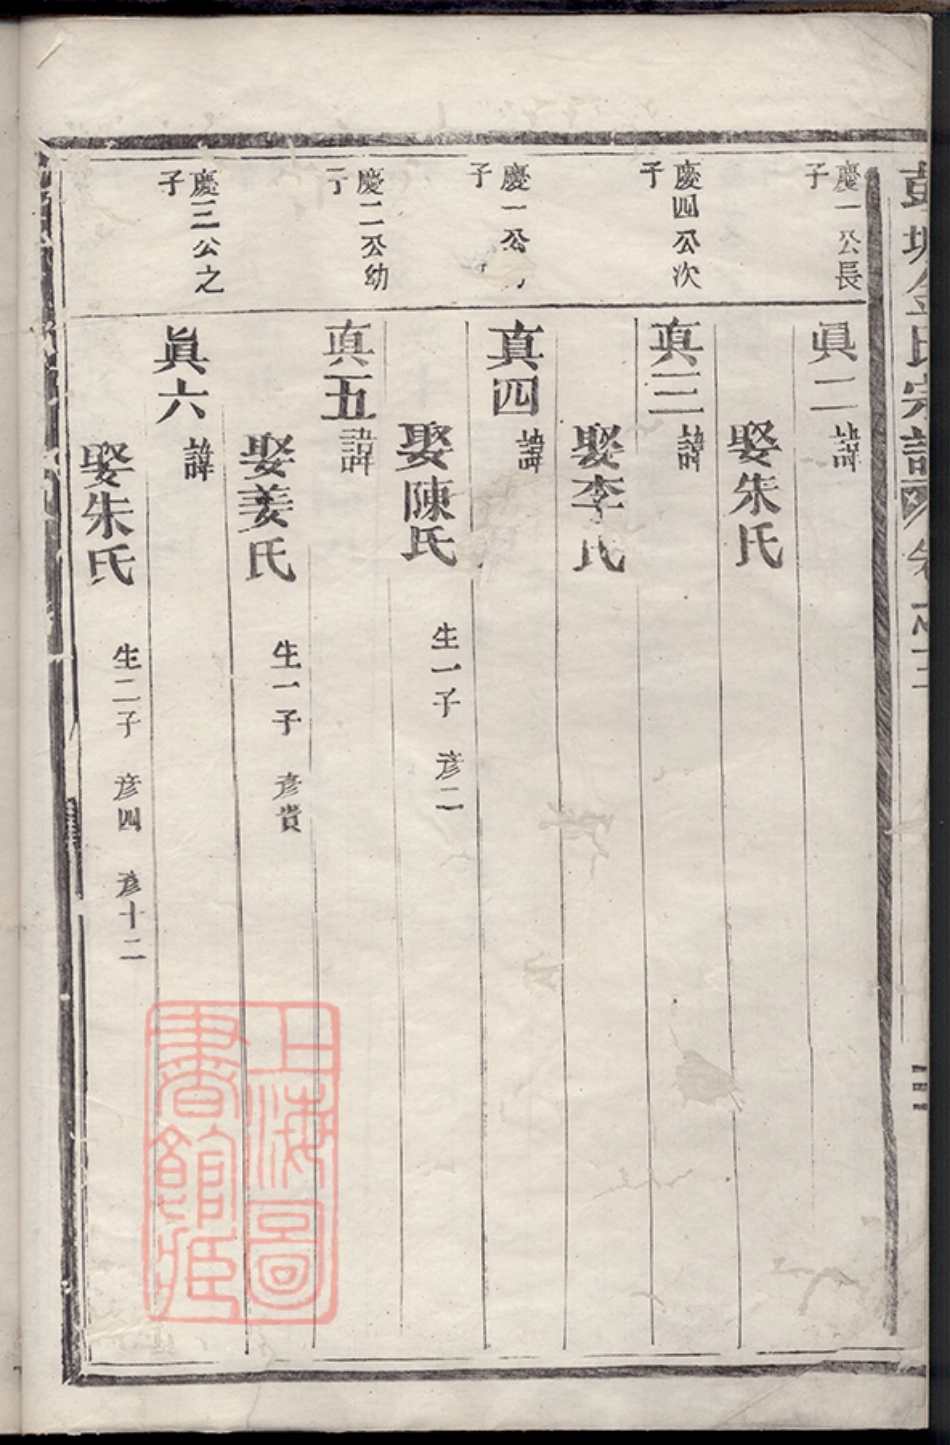 金氏宗譜 卷之三
慶一公長
子
眞二 諱
娶朱氏
慶四公次
子
真三 諱
娶李氏
慶一公
子
真四 諱
娶陳氏 生一子 彦二
慶二公幼
子
真五 諱
娶姜氏 生一子 彦貴
慶三公之
子
眞六 諱
娶朱氏 生二子 彦四 彦十二
上海圖
書館藏